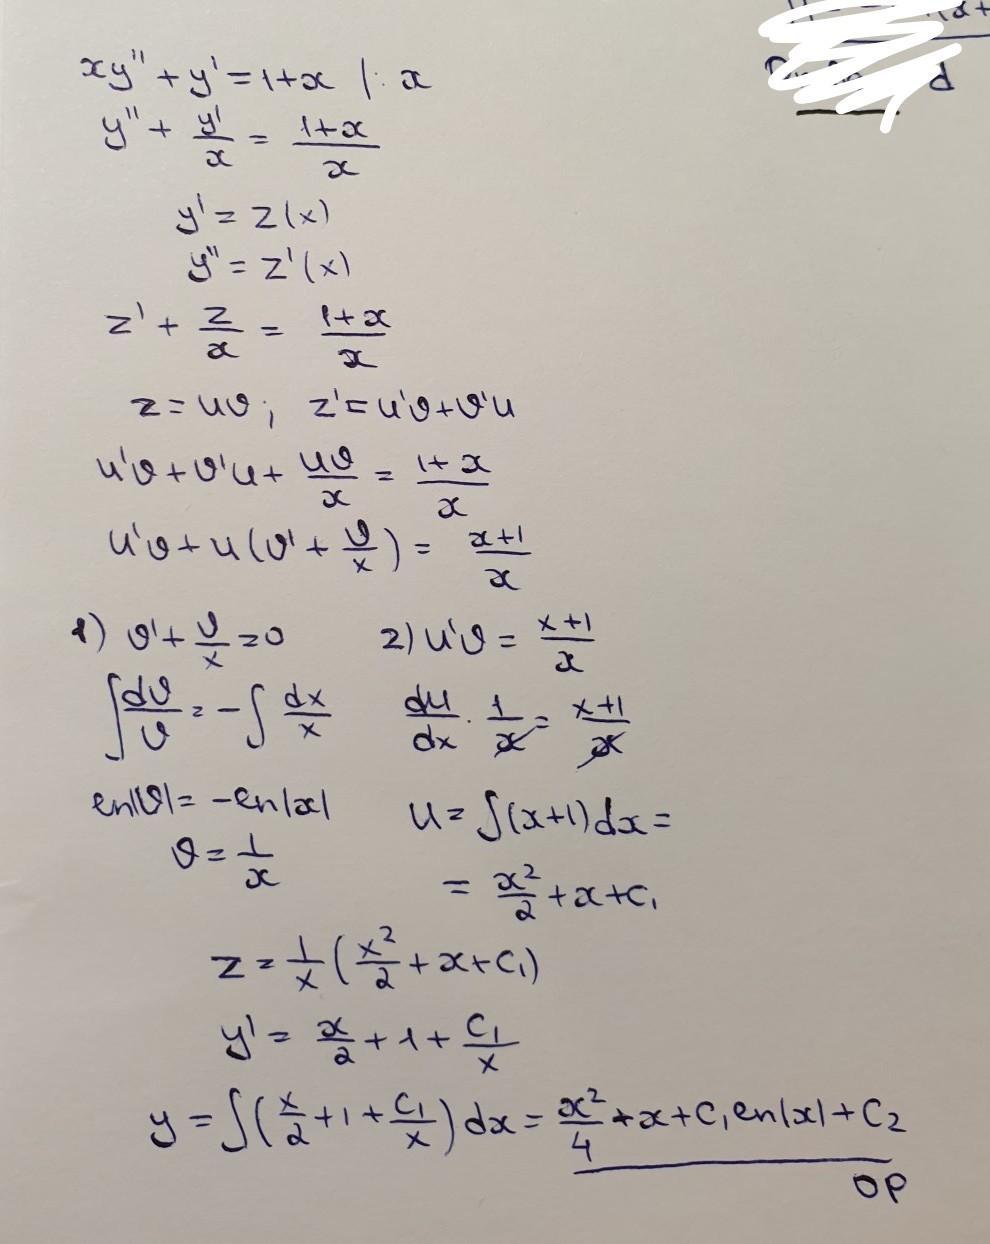 xy'' + y' = 1+x |: x
y'' + y'/x = (1+x)/x
y' = z(x)
y'' = z'(x)
z' + z/x = (1+x)/x
z = uv; z' = u'v + v'u
u'v + v'u + uv/x = (1+x)/x
u'v + u(v' + v/x) = (x+1)/x
1) v' + v/x = 0
∫dv/v = -∫dx/x
ln|v| = -ln|x|
v = 1/x
2) u'v = (x+1)/x
du/dx · 1/x = (x+1)/x
u = ∫(x+1)dx =
= x²/2 + x + C₁
z = 1/x (x²/2 + x + C₁)
y' = x/2 + 1 + C₁/x
y = ∫(x/2 + 1 + C₁/x)dx = x²/4 + x + C₁ln|x| + C₂
OP